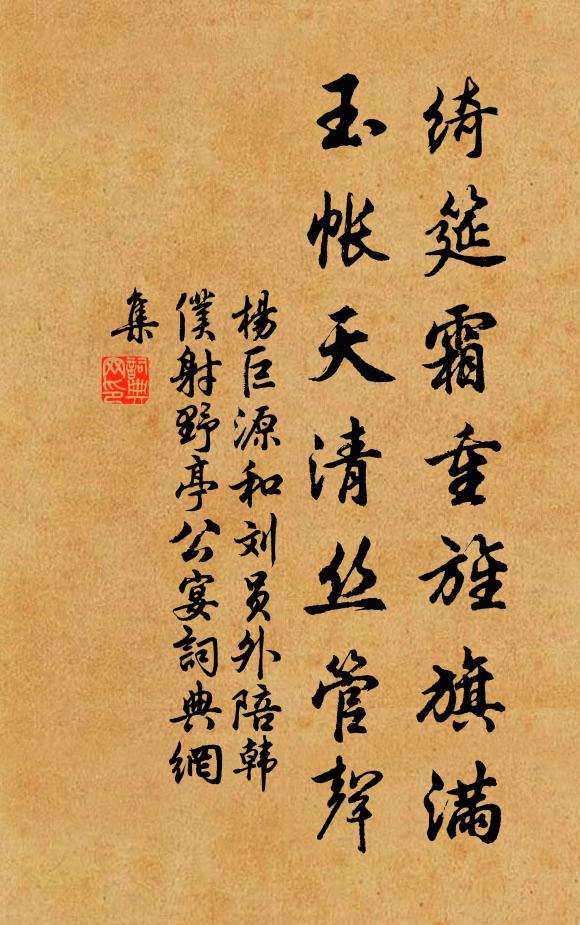 绮筵霜重旌旗满
玉帐天清丝管声
杨巨源和刘员外陪韩
僕射野亭公宴詞典網
集
詞典
网印